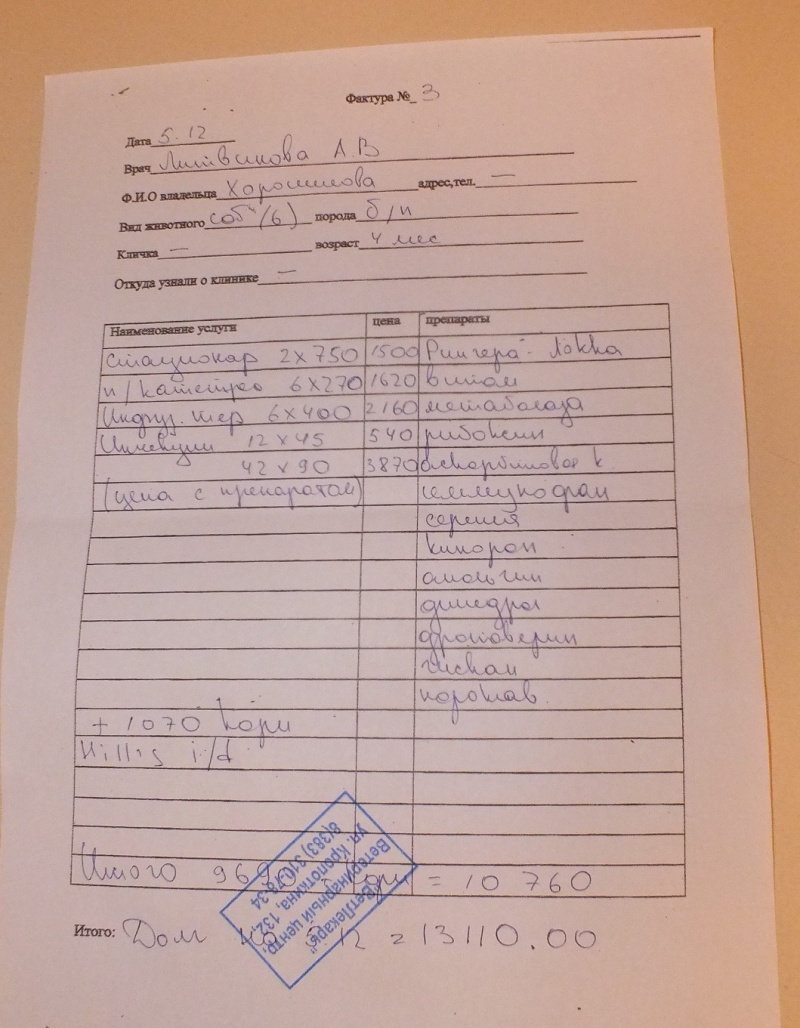 Фактура № 3
Дата 5.12
Врач Литвинова А.В
Ф.И.О владельца Хорошилова адрес,тел. —
Вид животного соб (б) порода б/п
Кличка — возраст 4 мес
Откуда узнали о клинике —
Наименование услуги цена препараты
стационар 2 x 750 1500 Рингера - Локка
п/катетер 6 x 270 1620 витам
Инфуз. тер 6 x 400 2160 метаболаза
Инъекции 12 x 45 540 рибоксин
42 x 90 3870 аскорбиновая к
(цена с препаратом) иммунофан
серения
квиорон
анальгин
димедрол
дротаверин
+ 1070 корм
Hill's i/d
Итого 96 = 10 760
Итого: Долг на 12 = 13110.00
"ВетЛекарь"
Ветеринарный центр,
ул. Кропоткина, 132,
8(383) 310-78-34